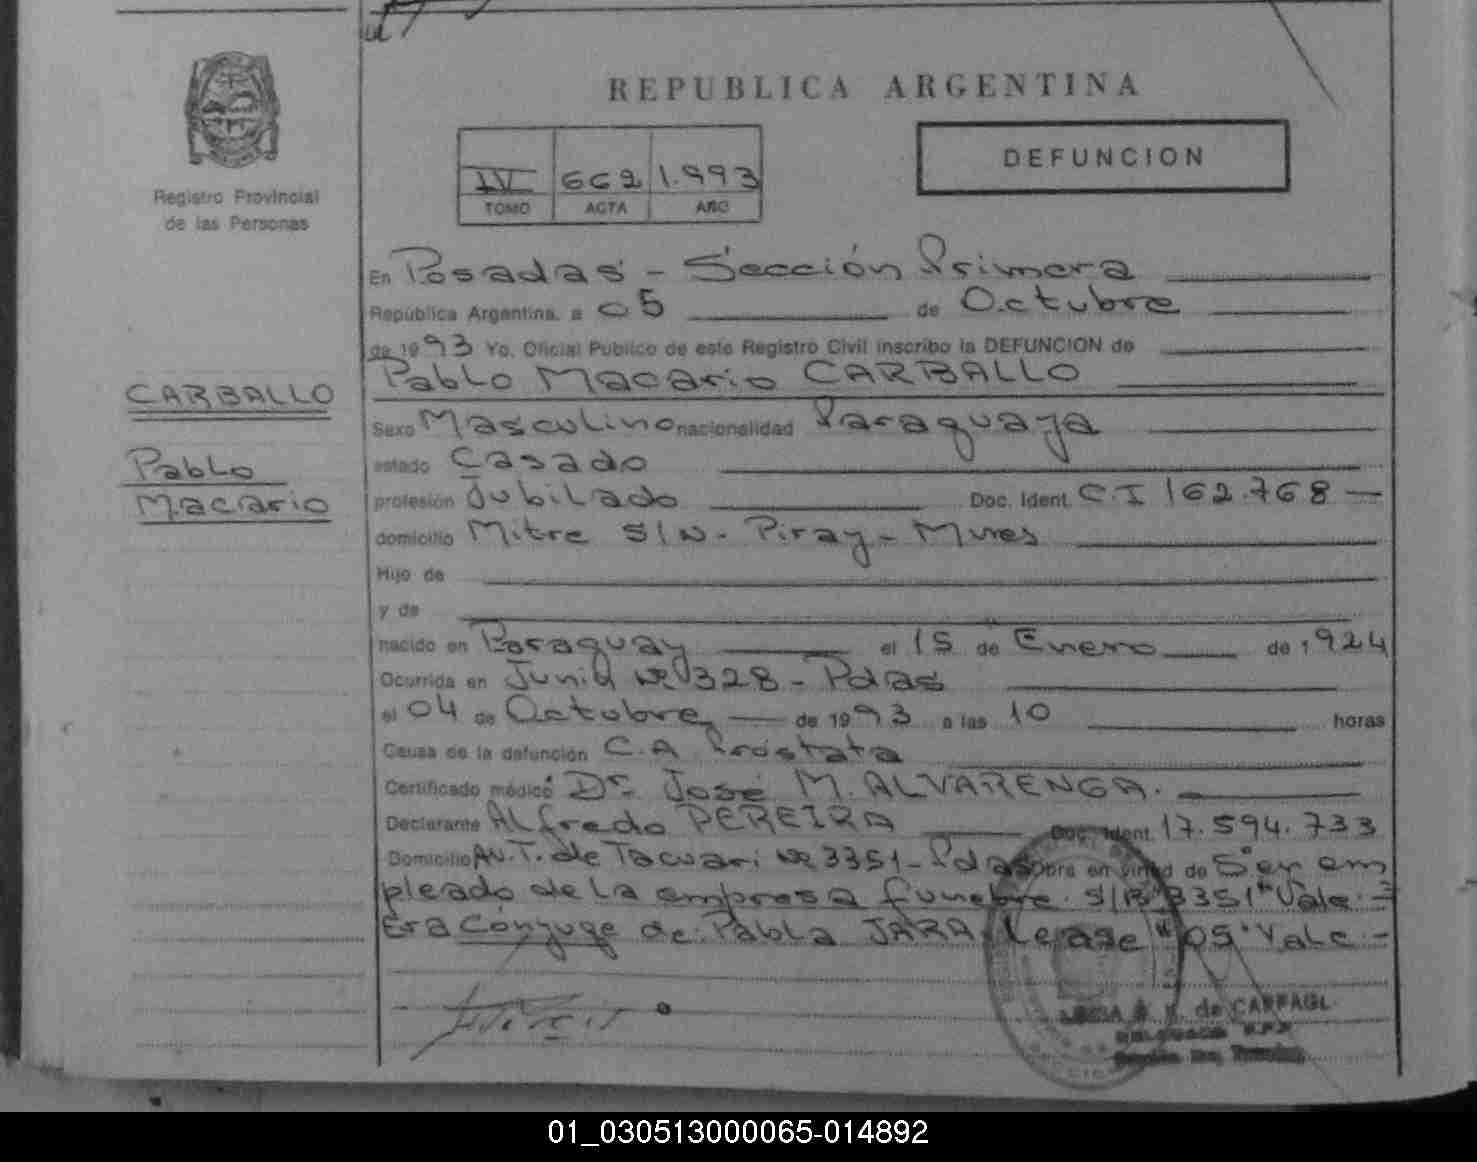 REPUBLICA ARGENTINA
DEFUNCION
IV 662 1.993
TOMO ACTA AÑO
Registro Provincial
de las Personas
CARBALLO
Pablo
Macario
En Posadas - Sección Primera
República Argentina, a 05 de Octubre
de 1993 Yo, Oficial Público de este Registro Civil inscribo la DEFUNCION de
Pablo Macario CARBALLO
Sexo Masculino nacionalidad Paraguaya
estado Casado
profesión Jubilado Doc. Ident. C.I 162.768 -
domicilio Mitre S/N - Piray - Mnes
Hijo de
y de
nacido en Paraguay el 15 de Enero de 1924
Ocurrida en Junin Nº 328 - Pdas
el 04 de Octubre de 1993 a las 10 horas
Causa de la defunción C.A Próstata
Certificado médico Dr. José M. ALVARENGA.
Declarante Alfredo PEREIRA Doc. Ident. 17.594.733
Domicilio Av. T. de Tacuari Nº 3351 - Pdas obra en virtud de Ser em
pleado de la empresa funebre. S/B "3351" Vale. -
Era Cónyuge de: Pabla JARA. Lease "05" Vale. -
de CARFAGL
01_030513000065-014892